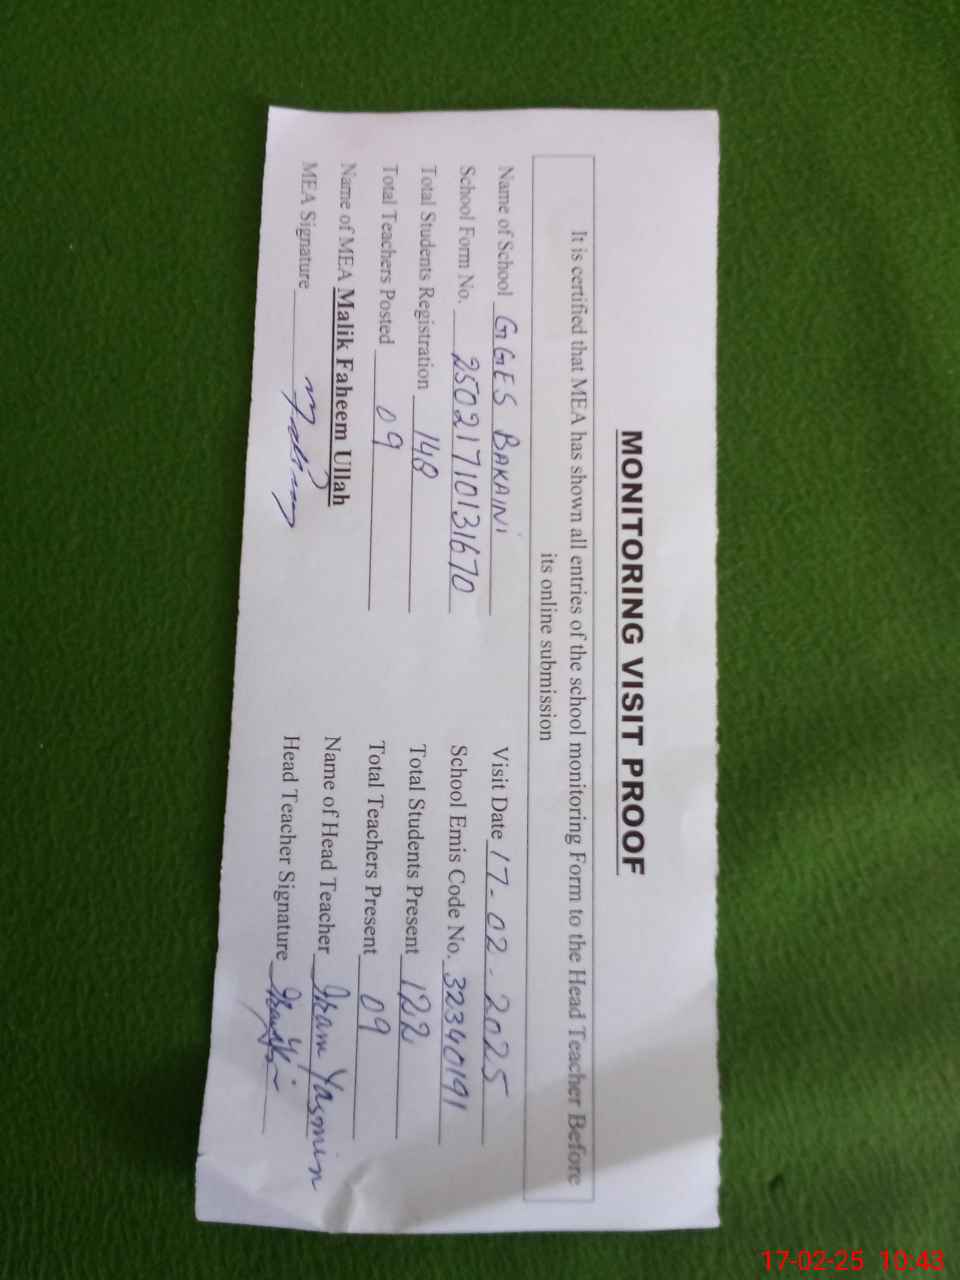 MONITORING VISIT PROOF
It is certified that MEA has shown all entries of the school monitoring Form to the Head Teacher Before
its online submission
Name of School GGES BAKAINI Visit Date 17-02-2025
School Form No. 25021710131670 School Emis Code No. 32340191
Total Students Registration 148 Total Students Present 122
Total Teachers Posted 09 Total Teachers Present 09
Name of MEA Malik Faheem Ullah Name of Head Teacher Iram Yasmin
MEA Signature Head Teacher Signature
17-02-25 10:43